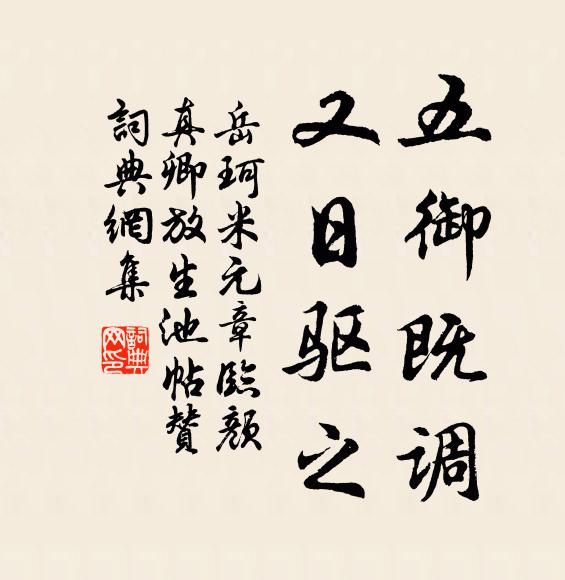 五御既调
又日驱之
岳珂米元章臨颜
真卿放生池帖贊
詞典網集
詞典
网印